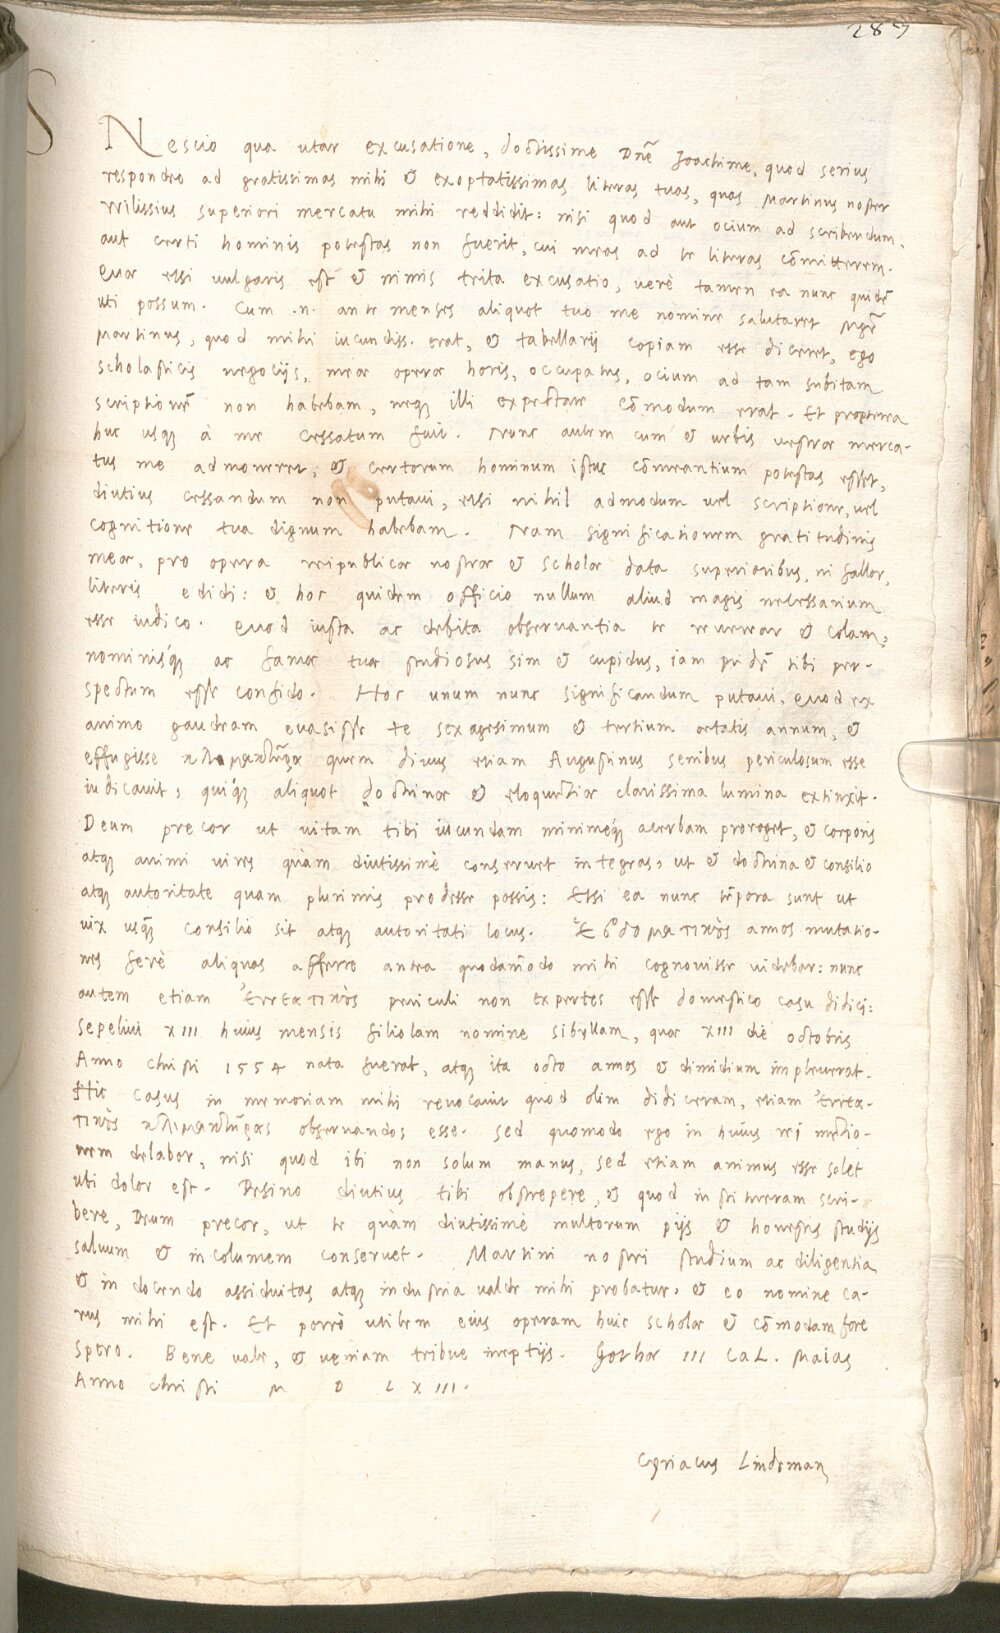 289
S
Nescio qua utar excusatione, doctissime Dñe Joachime, quod serius
respondeo ad gratissimas mihi & exoptatissimas literas tuas, quas Martinus noster
superiori mercatu mihi reddidit: nisi quod aut ocium ad scribendum,
aut certi hominis potestas non fuerit, cui meas ad te literas cõmitterem.
Quae etsi vulgaris est & nimis trita excusatio, verè tamen ea nunc quidẽ
uti possum. Cum .n. ante menses aliquot tuo me nomine salutaret Mgr̃
Martinus, quod mihi iucundiss. erat, & tabellarij copiam esse diceret, ego
scholasticis negocijs, meae operae horis, occupatus, ocium ad tam subitam
scriptionẽ non habebam, neq; illi expectare cõmodum erat. Et propterea
huc usq; à me cessatum fuit. Nunc autem cum & urbis vestrae merca-
tus me admoneret, & certorum hominum istuc cõmeantium potestas esset,
diutius cessandum non putavi, etsi nihil admodum vel scriptione, vel
cognitione tua dignum habebam. Nam significationem gratitudinis
meae, pro opera reipublicae nostrae & scholae data superioribus, ni fallor,
literis edidi: & hoc quidem officio nullum aliud magis necessarium
esse iudico. Quod iusta ac debita observantia te reverear & colam,
nominisq́; ac famae tuae studiosus sim & cupidus, iam pridẽ tibi per-
spectum esse confido. Hoc unum nunc significandum putavi, quod ex
animo gaudeam evasisse te sexagesimum & tertium aetatis annum, &
effugisse κλιμακτῆρα quem divus etiam Augustinus senibus periculosum esse
iudicavit, quiq́; aliquot doctrinae & eloquentiae clarissima lumina extinxit.
Deum precor ut vitam tibi iucundam minimeq́; acerbam proroget, & corporis
atq; animi vires quàm diutissimè conservet integras, ut & doctrina & consilio
atq; autoritate quam plurimis prodesse possis: Etsi ea nunc tẽpora sunt ut
vix usq̃; consilio sit atq; autoritati locus. Ἑβδοματικὸς annos mutatio-
nes ferè aliquas afferre antea quodam̃odo mihi cognovisse videbar: nunc
autem etiam ἐννεατικὸς periculi non expertes esse domestico casu didici:
Sepelivi XIII huius mensis filiolam nomine Sibyllam, quae XIII die octobris
Anno Christi 1554 nata fuerat, atq; ita octo annos & dimidium impleverat.
Hic casus in memoriam mihi revocavit quod olim didiceram, etiam ἐννεα-
τικὸς κλιμακτῆρας observandos esse. Sed quomodo ego in huius rej mentio-
nem delabor, nisi quod ibi non solum manus, sed etiam animus esse solet
ubi dolor est. Desino diutius tibi obstrepere, & quod institueram scri-
bere, Deum precor, ut te quàm diutissimè multorum pijs & honestis studijs
salvum & incolumem conservet. Martini nostri studium ac diligentia
& in docendo assiduitas atq; industria valde mihi probatur, & eo nomine ca-
rus mihi est. Et porrò utilem eius operam huic scholae & cõmodam fore
spero. Bene vale, & veniam tribue ineptijs. Gothae III CaL. Maias
Anno Christi M D L XIII.
Cyriacus Lindeman